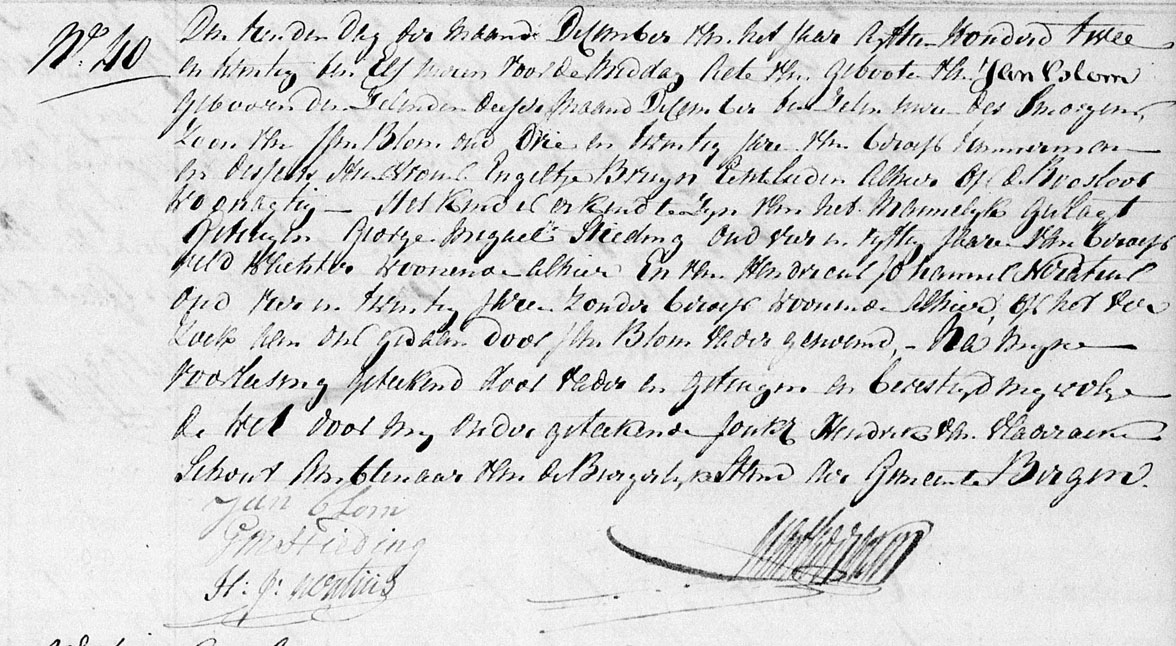 No. 40
Den tienden Dag der Maand December van het Jaar Agttien Honderd twee
en twintig ten Elf uuren voor de Middag Acte van geboote van Jan Blom
Gebooren den Tienden deeser Maand December ten Tien uure des Smorgens,
Zoon van Jan Blom oud Drie en twintig Jare van beroep timmerman
en desselfs Huisvrouw Engeltje Bruyn Echtelieden Alhier op de
Woonagtig – Het kind is erkend te Zyn van het Mannelyk geslagt
Getuigen George Stieding oud vier en vyftig Jaare van beroep
veld Wachter woonende Alhier En van Hendricus Johannes
oud vier en twintig Jare zonder beroep woonende Alhier, op het ver
zoek aan ons gedaan door Jan Blom Vader genoemd, – Na
voorleesing geteekend door Vader en getuigen en bevestigd ingevolge
de Wet door my ondergeteekende Jonkr Hendrik van
Schout Ambtenaar van de Burgerlyke Stand der Gemeente Bergen.
Jan Blom
G M Stieding
H: J: